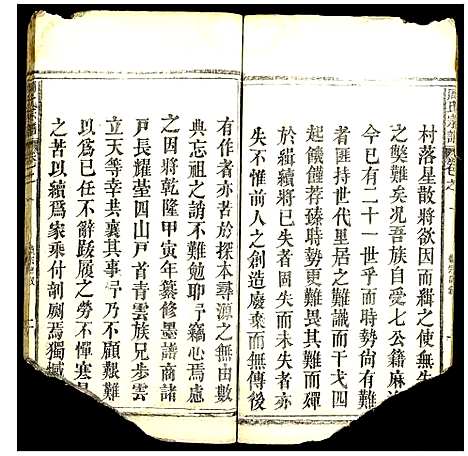 村落星散將欲因而緝之使無失
之斃難矣况吾族自宗七公籍麻
今已有二十一世乎而時勢尚難
者匪持世代里居之難識而干戈四
起饑饉荐臻時勢更難而殫
於緝續將已失者固失而未失者亦
失不惟前人之創造廢棄而無傳後
有作者亦苦於探本尋源之無由數
典忘祖之誚不難勉聊予竊心焉慮
之因將乾隆甲寅年纂修墨譜商諸
戸長耀蓥四山戸首青雲族兄步雲
立天等幸共襄其事予乃不顧艱難
以爲己任不辭跋履之勞不憚寒暑
之苦以續爲家乘付剞劂焉獨撼